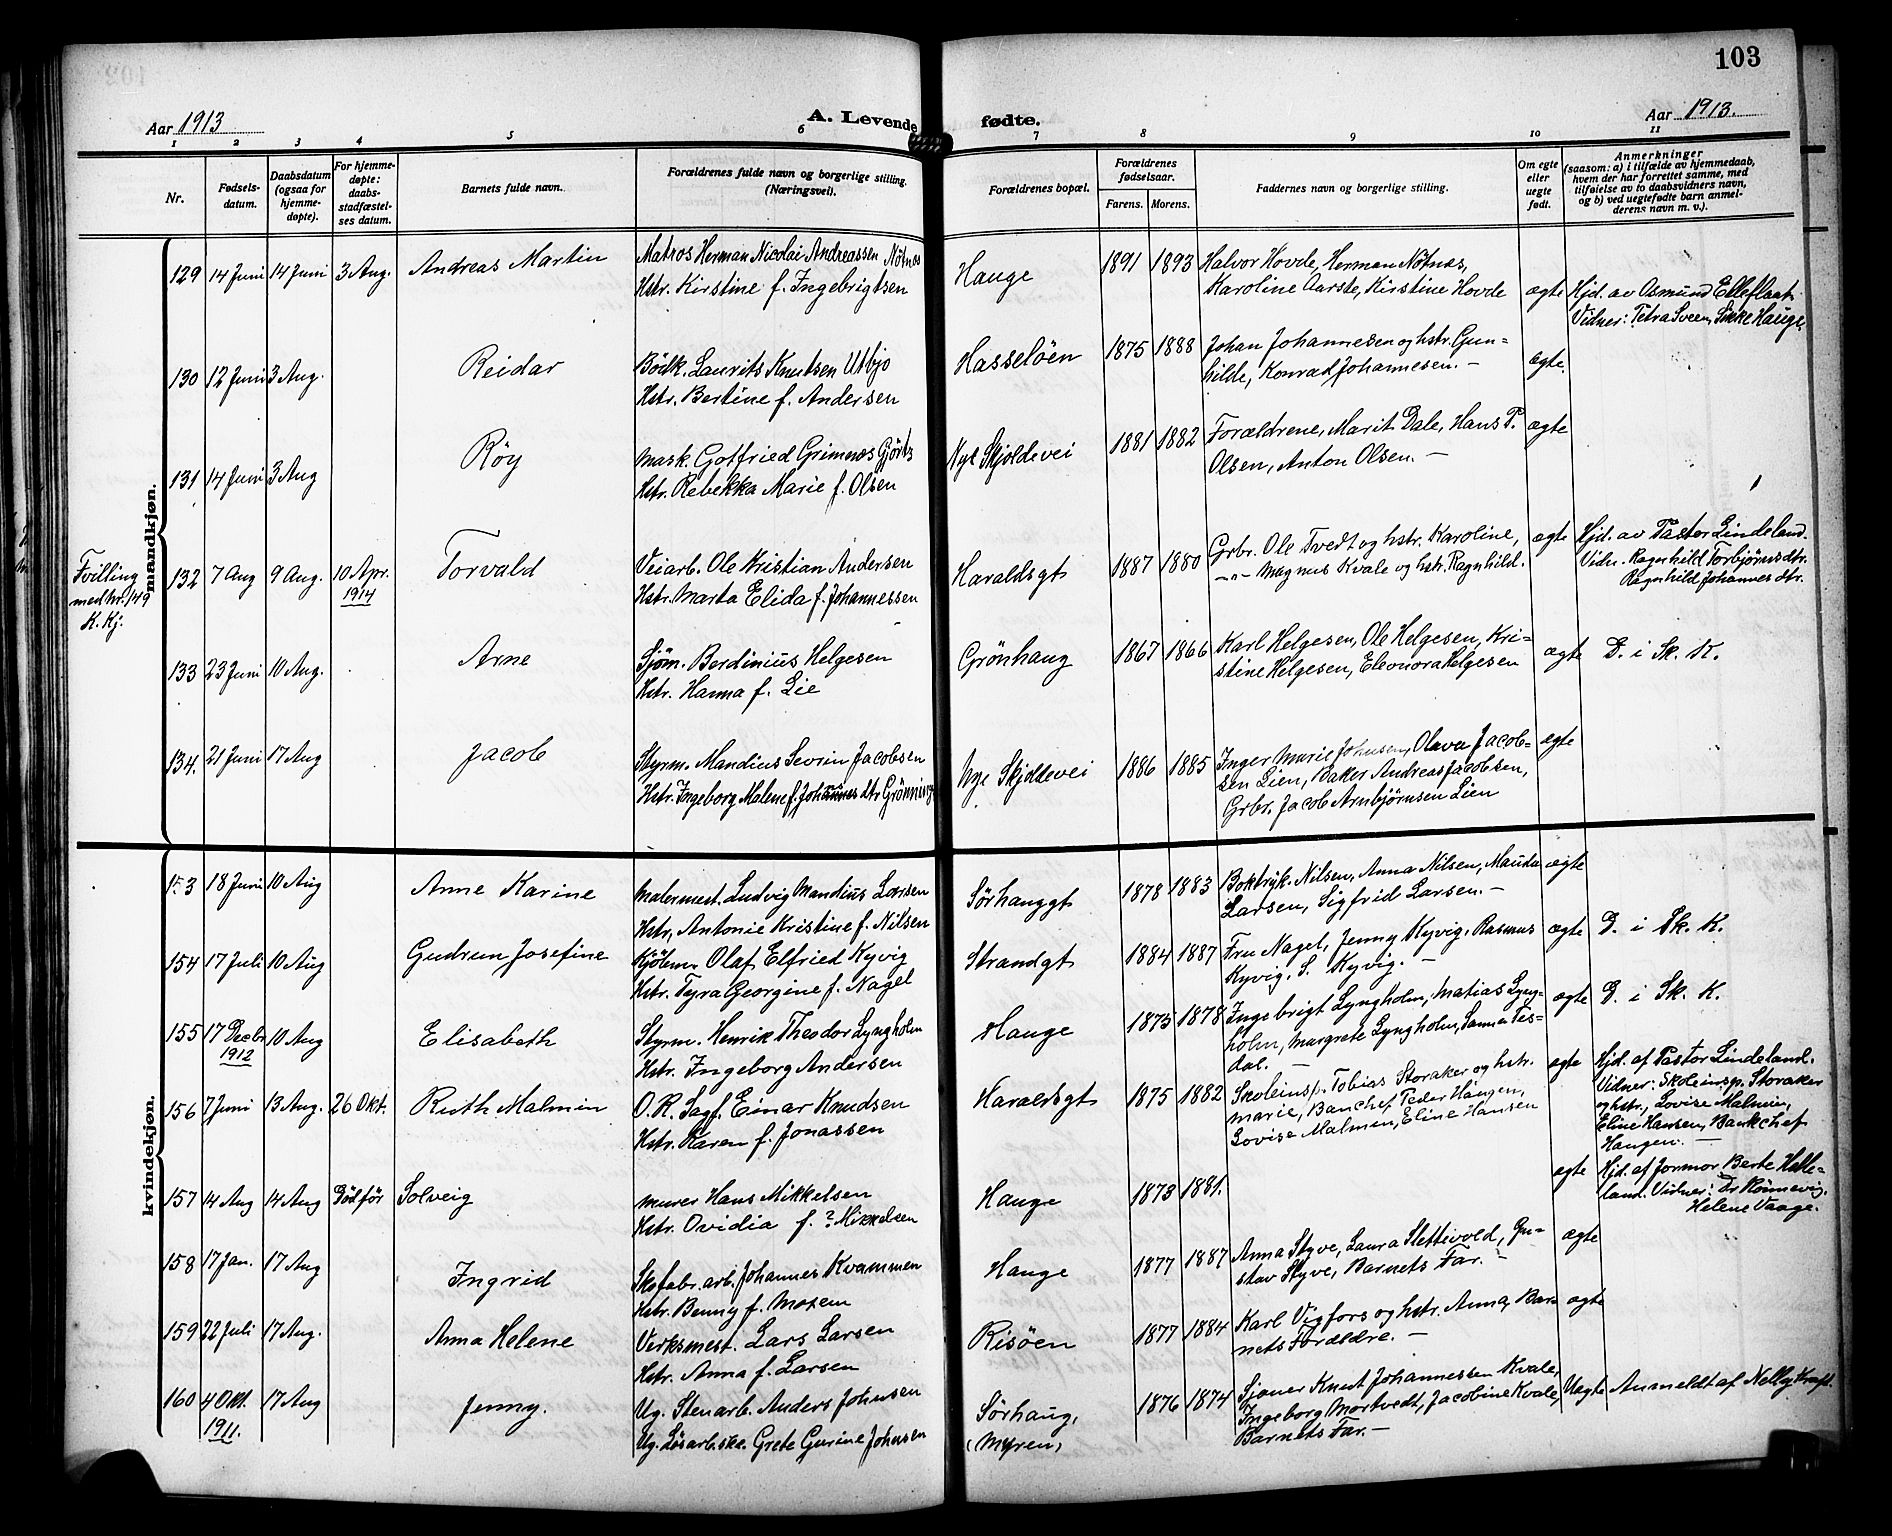 103
Aar 1913
A. Levende fødte.
Aar 1913.
1 2 3 4 5 6 7 8 9 10 11
Nr.
Fødsels-
datum.
Daabsdatum
(ogsaa for
hjemme-
døpte).
For hjemme-
døpte:
daabs-
stadfæstel-
ses datum.
Barnets fulde navn.
Forældrenes fulde navn og borgerlige stilling.
(Næringsvei).
Forældrenes bopæl.
Forældrenes
fødselsaar.
Farens. Morens.
Faddernes navn og borgerlige stilling.
Om egte
eller
uegte
født.
Anmerkninger
(saasom: a) i tilfælde av hjemmedaab,
hvem der har forrettet samme, med
tilføielse av to daabsvidners navn,
og b) ved uegtefødte barn anmel-
derens navn m. v.).
mandkjøn.
129 14 Juni 14 Juni 3 Aug. Andreas Martin
Matros Herman Nicolai Andreassen Nötnes
Hstr. Kirstine f. Ingebrigtsen
Hauge 1891 1893
Halvor Hovde, Herman Nötnes,
Karoline Aarste, Kirstine Hovde
ægte
Hjd. av Osmund Elleflaat
Vidner: Petra Sveen, Sikke Hauge.
130 12 Juni 3 Aug. Reidar
Bödk. Laurits Knutsen Utbjo
Hstr. Bertine f. Andersen
Hasselöen 1875 1888
Johan Johannesen og hstr. Gun-
hilde, Konrad Johannesen. –
ægte.
131 14 Juni 3 Aug Röy
Mask. Gotfried Grimnes Gjörtz
Hstr. Rebekka Marie f. Olsen
Nye Skjoldevei 1881 1882
Forældrene, Marit Dale, Hans P.
Olsen, Anton Olsen. –
ægte
Tvilling
med nr. 149
K. Kj.
132 7 Aug 9 Aug. 10 Apr.
1914
Torvald
Veiarb. Ole Kristian Andersen
Hstr. Marta Elida f. Johannessen
Haraldsgt 1887 1880
Grbr. Ole Tvedt og hstr. Karoline,
–"– Magnus Kvale og hstr. Ragnhild.
ægte
Hjd. av Pastor Lindeland.
Vidn. Ragnhild Torbjörnsdtr.
Ragnhild Johannesdtr.
133 23 Juni 10 Aug. Arne
Sjöm. Berdinius Helgesen
Hstr. Hanna f. Lie
Grönhaug 1867 1866
Karl Helgesen, Ole Helgesen, Kri-
stine Helgesen, Eleonora Helgesen
ægte D. i Sk. K.
134. 21 Juni 17 Aug Jacob
Styrm. Mandius Severin Jacobsen
Hstr. Ingeborg Malene f. Johannesdtr Grönning
Nye Skjoldevei 1886 1885
Inger Marie Johnsen, Olava Jacob-
sen Lien, Baker Andreas Jacobsen,
Grbr. Jacob Arnbjörnsen Lien
ægte
kvindekjøn.
153 18 Juni 10 Aug Anne Karine
Malermest. Ludvig Mandius Larsen
Hstr. Antonie Kristine f. Nilsen
Sörhauggt 1878 1883
Boktryk. Nilsen, Anna Nilsen, Manda
Larsen, Sigfrid Larsen. –
ægte
154 17 Juli 10 Aug Gudrun Josefine
Kjöbm. Olaf Elfried Kyvig
Hstr. Tyra Georgine f. Nagel
Strandgt 1884 1887
Fru Nagel, Jenny Kyvig, Rasmus
Kyvig, S. Kyvig. –
ægte D. i Sk. K.
155 17 Decbr
1912
10 Aug Elisabeth
Styrm. Henrik Theodor Lyngholm
Hstr. Ingeborg Andersen
Hauge 1875 1878
Ingebrigt Lyngholm, Matias Lyng-
holm, Margrete Lyngholm, Sanna Tes-
dal. –
ægte D. i Sk. K.
156 7 Juni 13 Aug. 26 Okt. Ruth Malmin
O. R. Sagf. Einar Knudsen
Hstr. Karen f. Jonassen
Haraldsgt 1875 1882
Skoleinsp. Tobias Storaker og hstr.
Marie, Banchef Peder Haugen,
Lovise Malmin, Eline Hansen
ægte
Hjd. af Pastor Lindeland.
Vidner: Skoleinsp. Storaker
og hstr., Lovise Malmin,
Eline Hansen, Bankchef
Haugen. –
157 14 Aug 14 Aug Död för Solveig
Murer Hans Mikkelsen
Hstr. Ovidia f. ? Mikkelsen
Hauge 1873 1881.
ægte
Hjd. af Jormor Berte Helle-
land. Vidner: Dr Rönnevig.
Helene Vaage.
158 17 Jan. 17 Aug Ingrid
Skofabr. arb. Johannes Kvammen
Hstr. Benny f. Moxem
Hauge 1877 1887
Anna Styve, Laura Slettevold, Gu-
stav Styve, Barnets Far. –
ægte
159 22 Juli 17 Aug. Anna Helene
Verksmest. Lars Larsen
Hstr. Anna f. Larsen
Risöen 1877 1884
Karl Vigfors og hstr. Anna, Bar-
nets Forældre. –
ægte
160 4 Okt.
1911.
17 Aug Jenny.
Ug. Stenarb. Anders Johnsen
Ug. Lösarb.ske. Grete Gurine Johnsen
Sörhaug,
(Myren) 1876 1874
Sjauer Knut Johannesen Kvale,
Ingeborg Mortvedt, Jacobine Kvale,
Barnets Far. –
Uægte Anmeldt af Nelly Kraft.